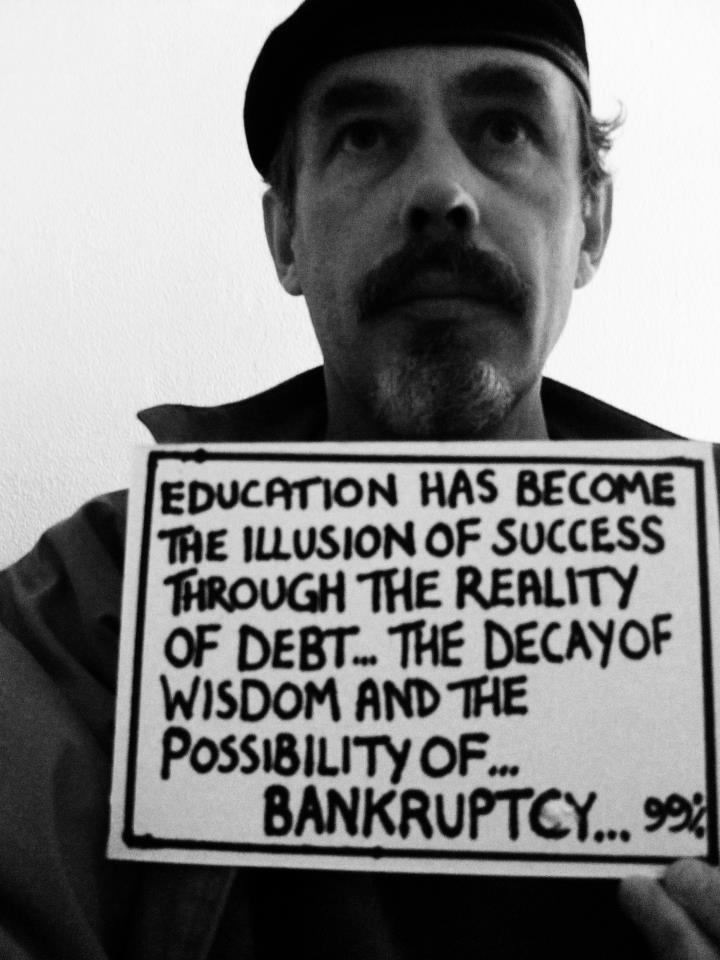 EDUCATION HAS BECOME
THE ILLUSION OF SUCCESS
THROUGH THE REALITY
OF DEBT... THE DECAY OF
WISDOM AND THE
POSSIBILITY OF...
BANKRUPTCY... 99%